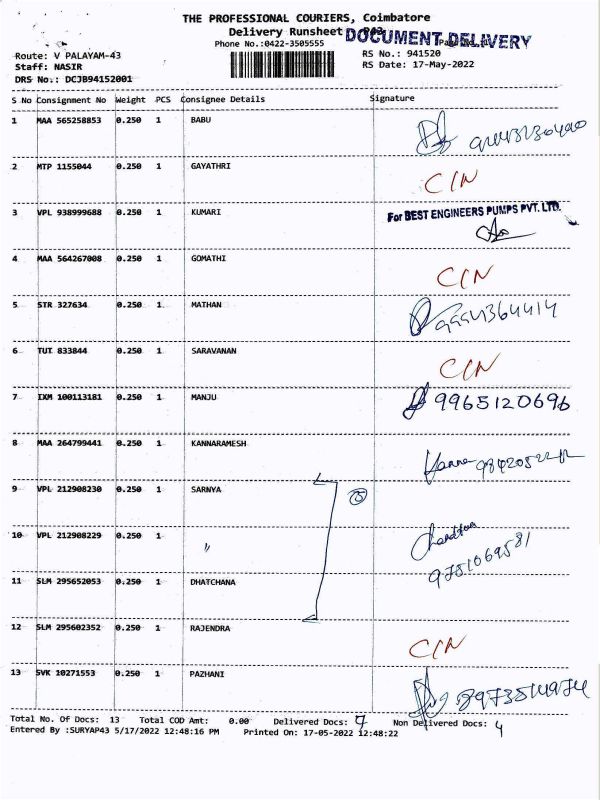 THE PROFESSIONAL COURIERS, Coimbatore
Delivery Runsheet - P43
DOCUMENT DELIVERY
Phone No.:0422-3505555
Route: V PALAYAM-43
RS No.: 941520
Staff: NASIR
RS Date: 17-May-2022
DRS No.: DCJB94152001
S No Consignment No Weight PCS Consignee Details Signature
1 MAA 565258853 0.250 1 BABU
2 MTP 1155044 0.250 1 GAYATHRI C/N
3 VPL 938999688 0.250 1 KUMARI For BEST ENGINEERS PUMPS PVT. LTD.
4 MAA 564267008 0.250 1 GOMATHI C/N
5 STR 327634 0.250 1 MATHAN
6 TUT 833844 0.250 1 SARAVANAN C/N
7 IXM 100113181 0.250 1 MANJU 9965120696
8 MAA 264799441 0.250 1 KANNARAMESH
9 VPL 212908230 0.250 1 SARNYA
10 VPL 212908229 0.250 1 〃 9751069581
11 SLM 295652053 0.250 1 DHATCHANA
12 SLM 295602352 0.250 1 RAJENDRA C/N
13 SVK 10271553 0.250 1 PAZHANI
Total No. Of Docs: 13 Total COD Amt: 0.00 Delivered Docs: 9 Non Delivered Docs: 4
Entered By :SURYAP43 5/17/2022 12:48:16 PM Printed On: 17-05-2022 12:48:22